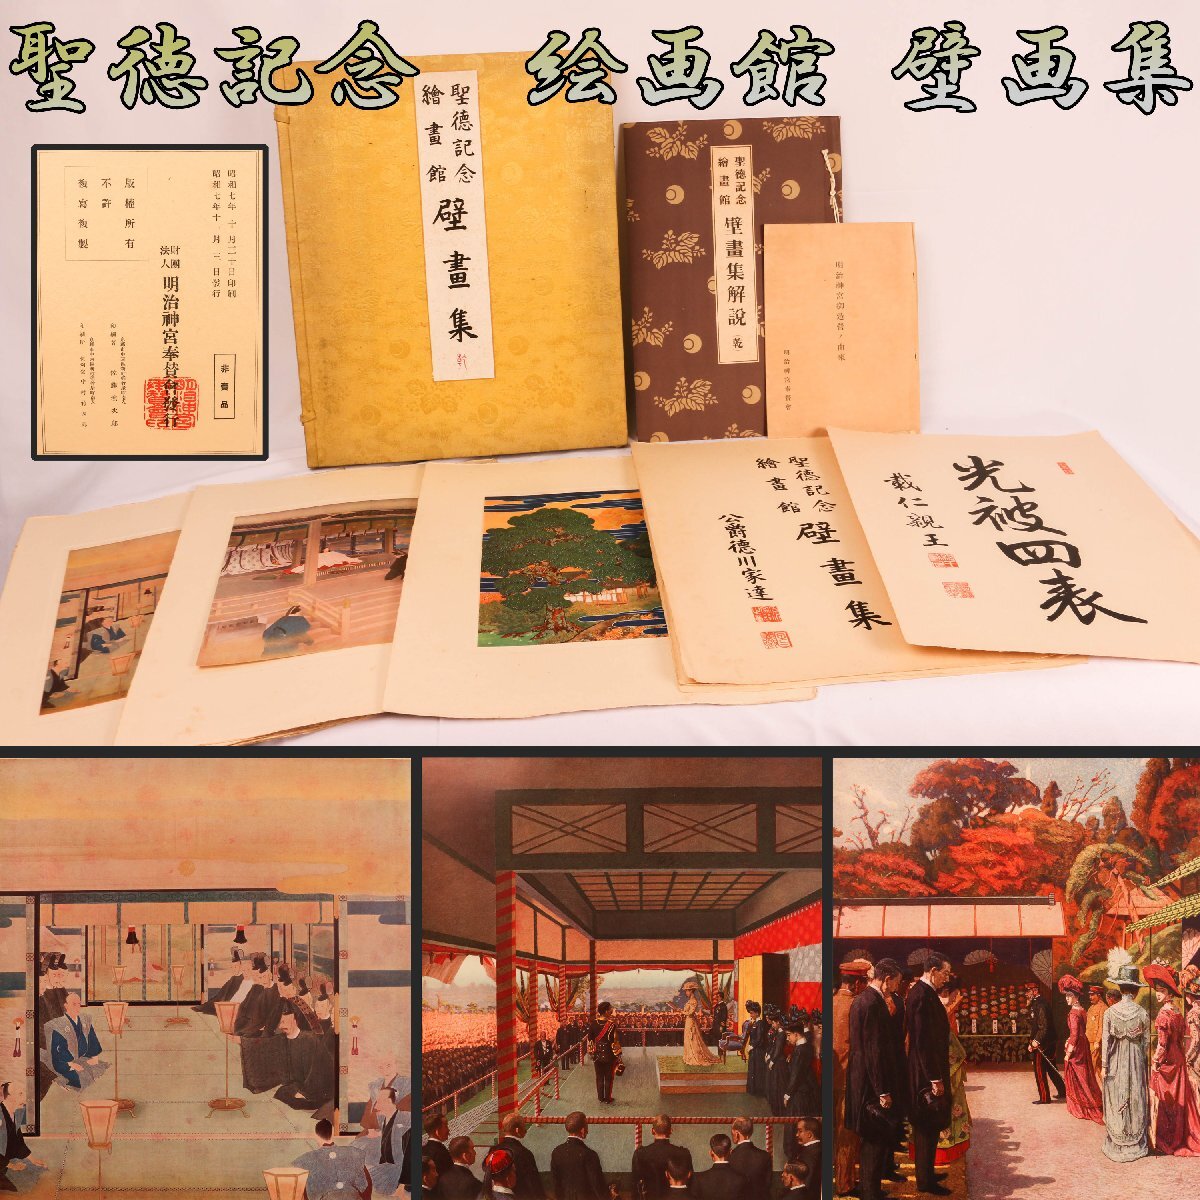 聖徳記念 絵画館 壁画集
聖德記念
繪畫館
壁畫集
乾
聖德記念
繪畫館
壁畫集解説
乾
明治神宮御造營ノ由來
明治神宮奉賛會
昭和七年
印刷
昭和七年
發行
版權所有
不許
複寫複製
財團
法人
明治神宮奉賛會發行
非賣品
聖德記念
繪畫館
壁畫集
公爵德川家達
光被四表
載仁親王